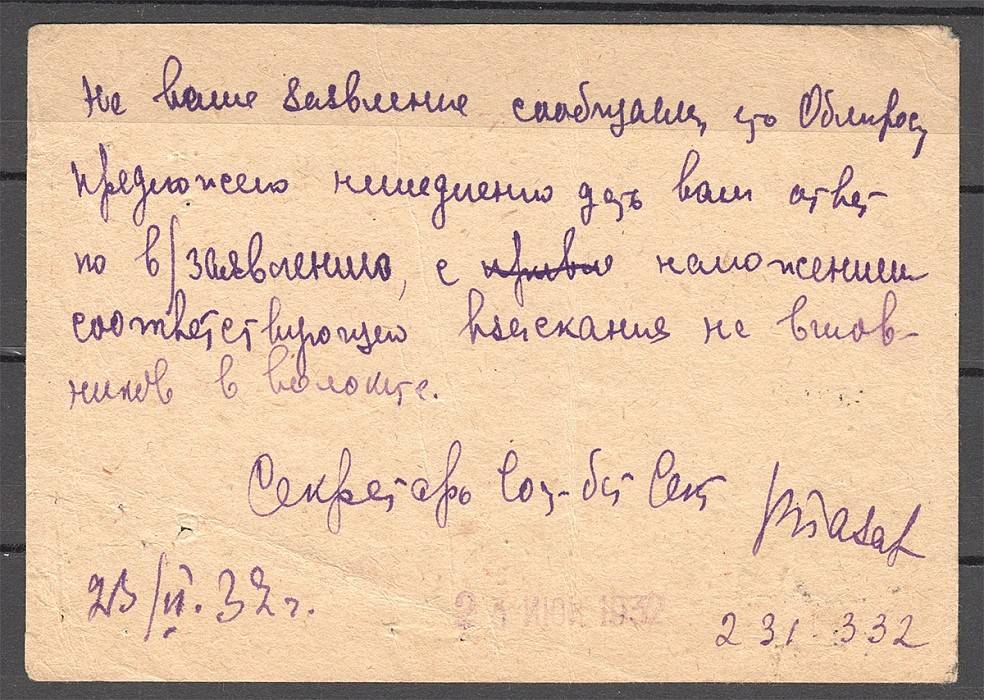 На ваше заявление сообщаем, что Облпрос
предложено немедленно дать вам ответ
по в/заявлению, с наложением
соответствующего взыскания на винов-
ников в волоките.
Секретарь Соц-быт Сек
23/VI. 32 г.
2 ИЮН 1932
231 332